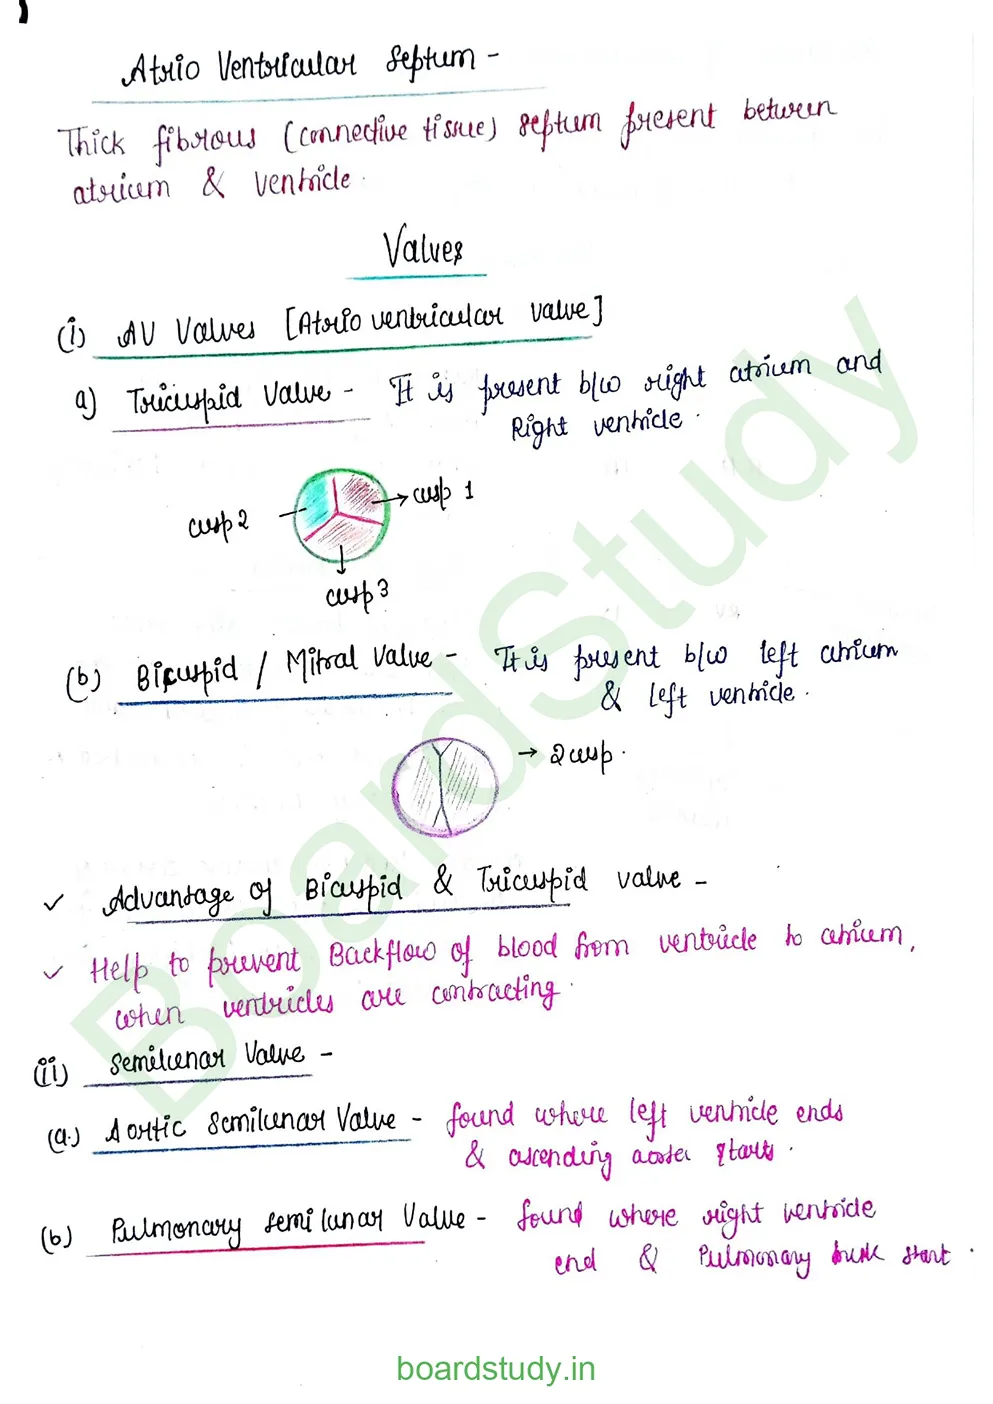 Atrio Ventricular Septum -
Thick fibrous (connective tissue) septum present between
atrium & ventricle.
Valves
(i) AV Valves [Atrio ventricular valve]
a) Tricuspid Valve - It is present b/w right atrium and
Right ventricle.
cusp 1
cusp 2
cusp 3
(b) Bicuspid / Mitral Valve - It is present b/w left atrium
& left ventricle.
→ 2 cusp.
✓ Advantage of Bicuspid & Tricuspid valve -
✓ Help to prevent Backflow of blood from ventricle to atrium,
when ventricles are contracting.
(ii) Semilunar Valve -
(a.) Aortic Semilunar Valve - found where left ventricle ends
& ascending aorta starts.
(b) Pulmonary semilunar Valve - found where right ventricle
end & Pulmonary trunk start.
BoardStudy
boardstudy.in